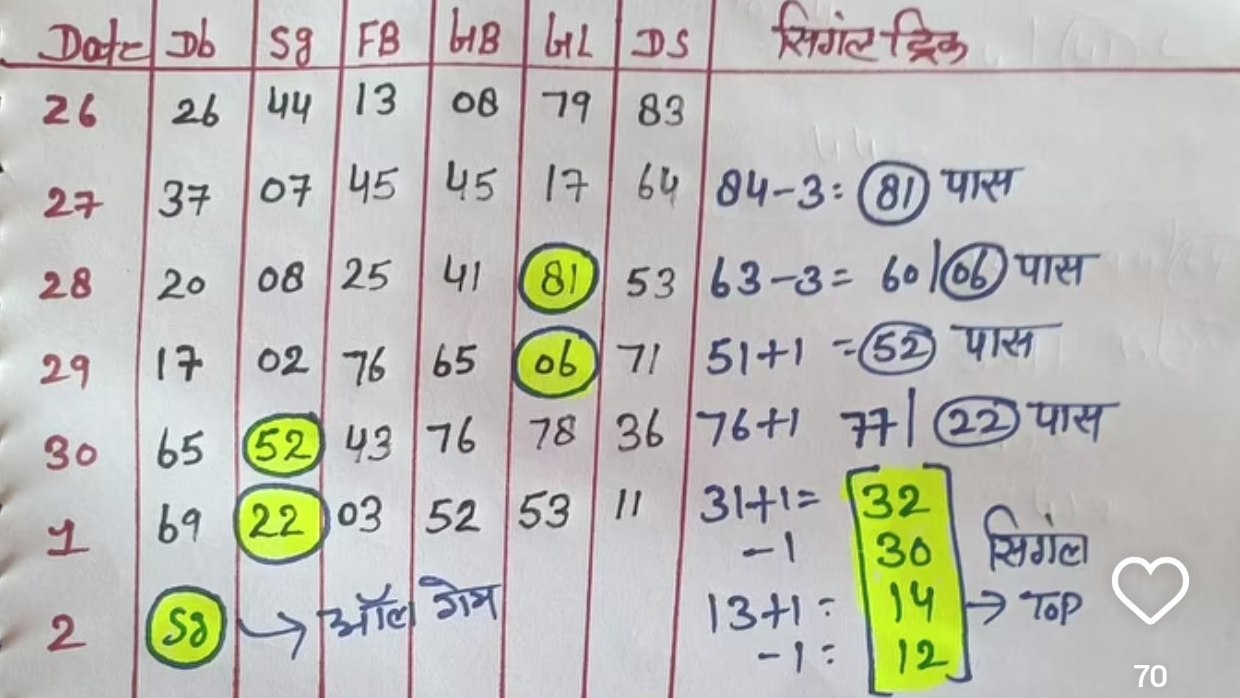 Date Db Sg FB GB GL DS सिगंल ट्रिक
26 26 44 13 08 79 83
27 37 07 45 45 17 64 84-3= 81 पास
28 20 08 25 41 81 53 63-3= 60|06 पास
29 17 02 76 65 06 71 51+1 =52 पास
30 65 52 43 76 78 36 76+1 77|22 पास
1 69 22 03 52 53 11 31+1= 32
-1 30 सिगंल
2 Sg → ऑल गेम 13+1= 14 → TOP
-1= 12
70